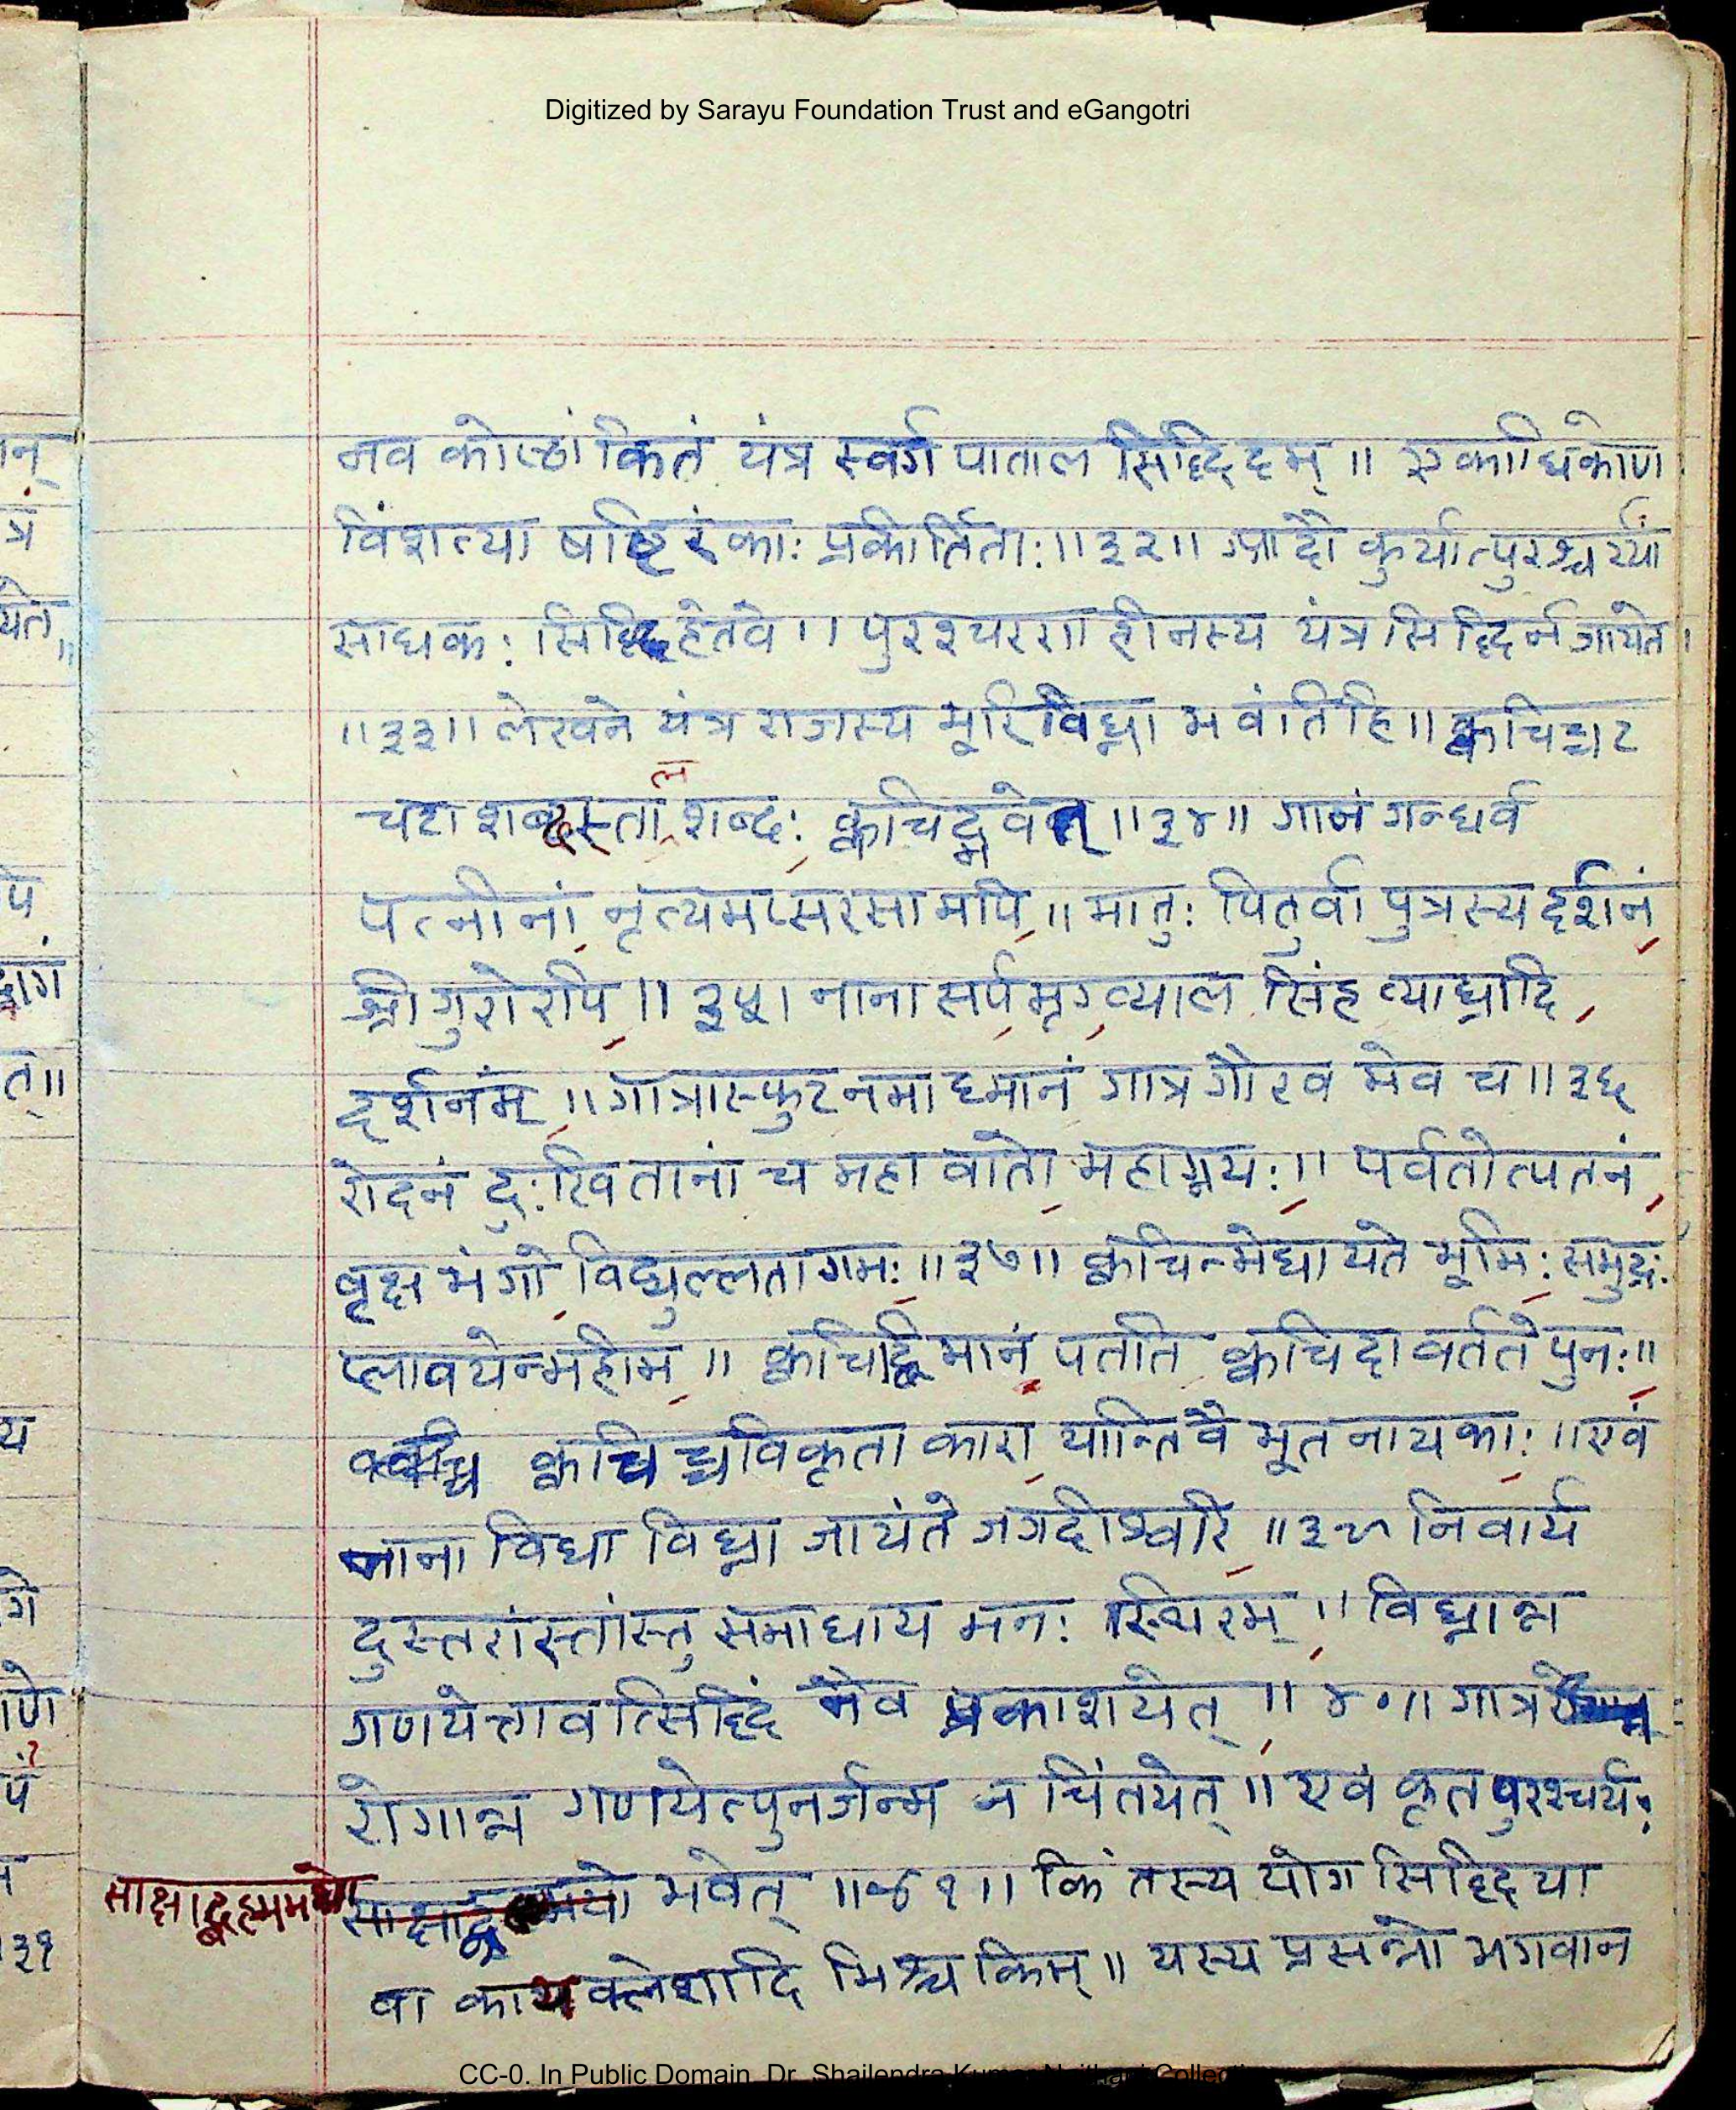 Digitized by Sarayu Foundation Trust and eGangotri
नव कोष्ठांकितं यंत्र स्वर्ग पाताल सिद्धिदम् ॥ एकाधिकोण
विंशत्या षष्टिरंकाः प्रकीर्तिताः ॥३२॥ आदौ कुर्यात्पुरश्चर्यां
साधकः सिद्धिहेतवे ॥ पुरश्चरणहीनस्य यंत्र सिद्धिर्न जायेत ।
॥३३॥ लेखने यंत्र राजस्य भूरि विघ्ना भवंति हि ॥ क्वचिच्चट
चटा शब्दस्ताल शब्दः क्वचिद्भवेत् ॥३४॥ गानं गन्धर्व
पत्नीनां नृत्यमप्सरसामपि ॥ मातुः पितुर्वा पुत्रस्य दर्शनं
श्री गुरोरपि ॥ ३५। नाना सर्पमृगव्याल सिंह व्याघ्रादि
दर्शनंम् ॥ गात्रास्फुटनमाध्मानं गात्र गौरव मेव च ॥३६
रोदनं दुःखितानां च महा वातो महाग्नयः ॥ पर्वतोत्पतनं
वृक्ष भंगो विद्युल्लतागमः ॥३७॥ क्वचिन्मेघायते भूमिः समुद्रः
प्लावयेन्महीम ॥ क्वचिद्विमानं पतति क्वचिदावर्तते पुनः ॥
क्वचिच्चविकृता कारा यान्ति वै भूत नायकाः ॥ एवं
नाना विधा विघ्ना जायंते जगदीश्वरि ॥३९ निवार्य
दुस्तरांस्तांस्तु समाधाय मनः स्थिरम् ॥ विघ्नान्न
गणयेत्तावत्सिद्धिं नैव प्रकाशयेत् ॥ ४०॥ गात्र
रोगान्न गणयेत्पुनर्जन्म न चिंतयेत् ॥ एवं कृत पुरश्चर्यः
साक्षाद्ब्रह्ममयो भवेत् ॥४१॥ किं तस्य योग सिद्धिया
वा कायक्लेशादि भिश्च किम् ॥ यस्य प्रसन्नो भगवान
CC-0. In Public Domain. Dr. Shailendra Kumar Naithani Collecti